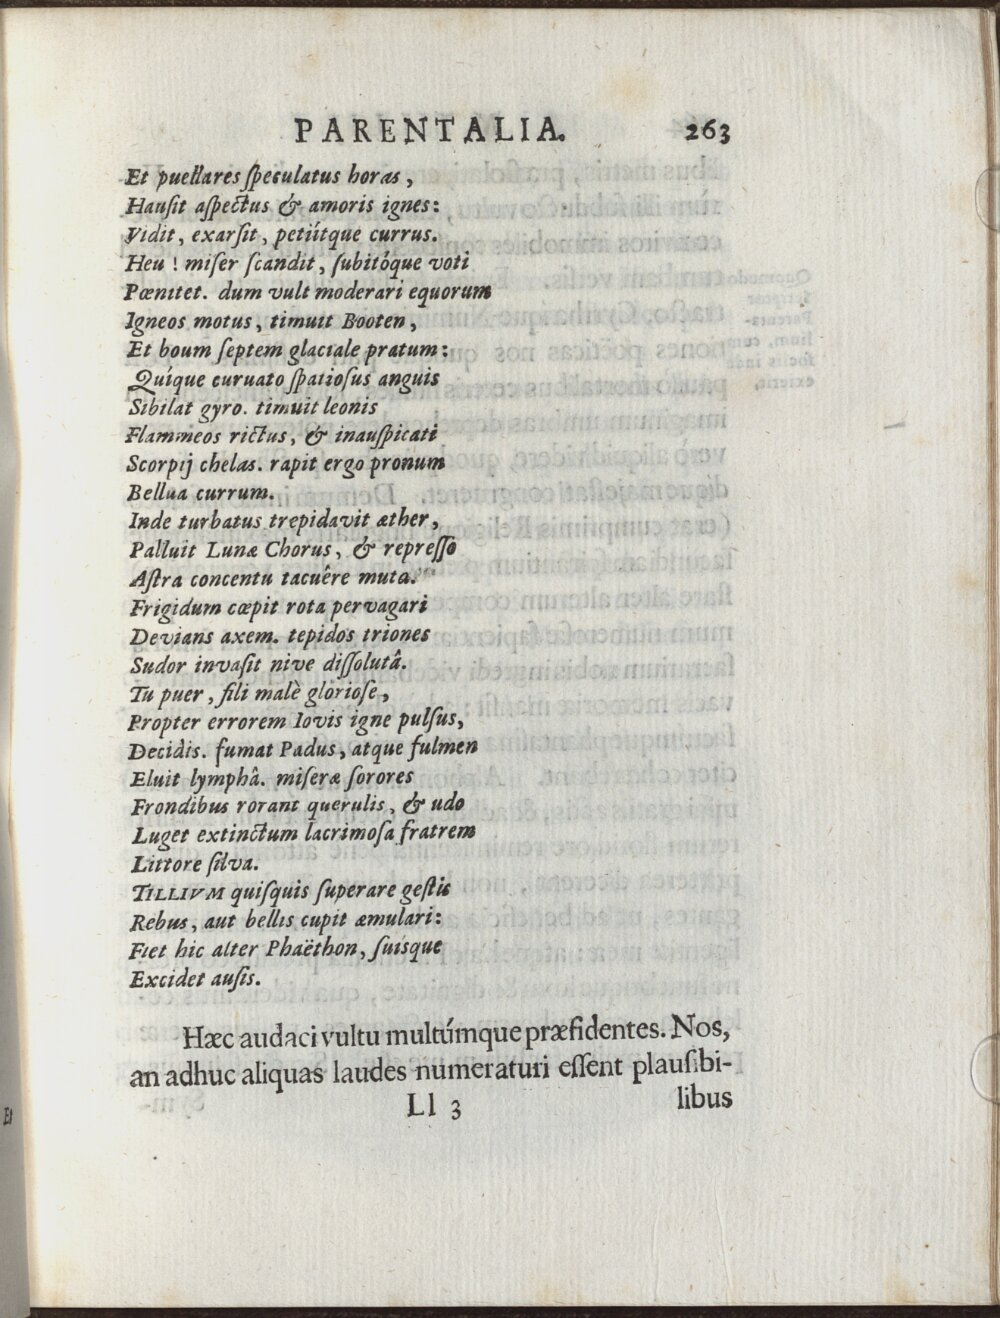 PARENTALIA. 263
Et puellares ſpeculatus horas,
Hauſit aſpectus & amoris ignes:
Vidit, exarſit, petiítque currus.
Heu! miſer ſcandit, ſubitóque voti
Pœnitet. dum vult moderari equorum
Igneos motus, timuit Booten,
Et boum ſeptem glaciale pratum:
Quique curuato ſpatioſus anguis
Sibilat gyro. timuit leonis
Flammeos rictus, & inauſpicati
Scorpij chelas. rapit ergo pronum
Bellua currum.
Inde turbatus trepidavit æther,
Palluit Lunæ Chorus, & repreſſo
Aſtra concentu tacuêre muta.
Frigidum cœpit rota pervagari
Devians axem. tepidos triones
Sudor invaſit nive diſſolutâ.
Tu puer, fili malè glorioſe,
Propter errorem Iovis igne pulſus,
Decidis. fumat Padus, atque fulmen
Eluit lymphâ. miſeræ ſorores
Frondibus rorant querulis, & udo
Luget extinctum lacrimoſa fratrem
Littore ſilva.
TILLIVM quiſquis ſuperare geſtis
Rebus, aut bellis cupit æmulari:
Fiet hic alter Phaëthon, ſuisque
Excidet auſis.
Hæc audaci vultu multúmque præfidentes. Nos,
an adhuc aliquas laudes numeraturi eſſent plauſibi-
Ll 3 libus
Et